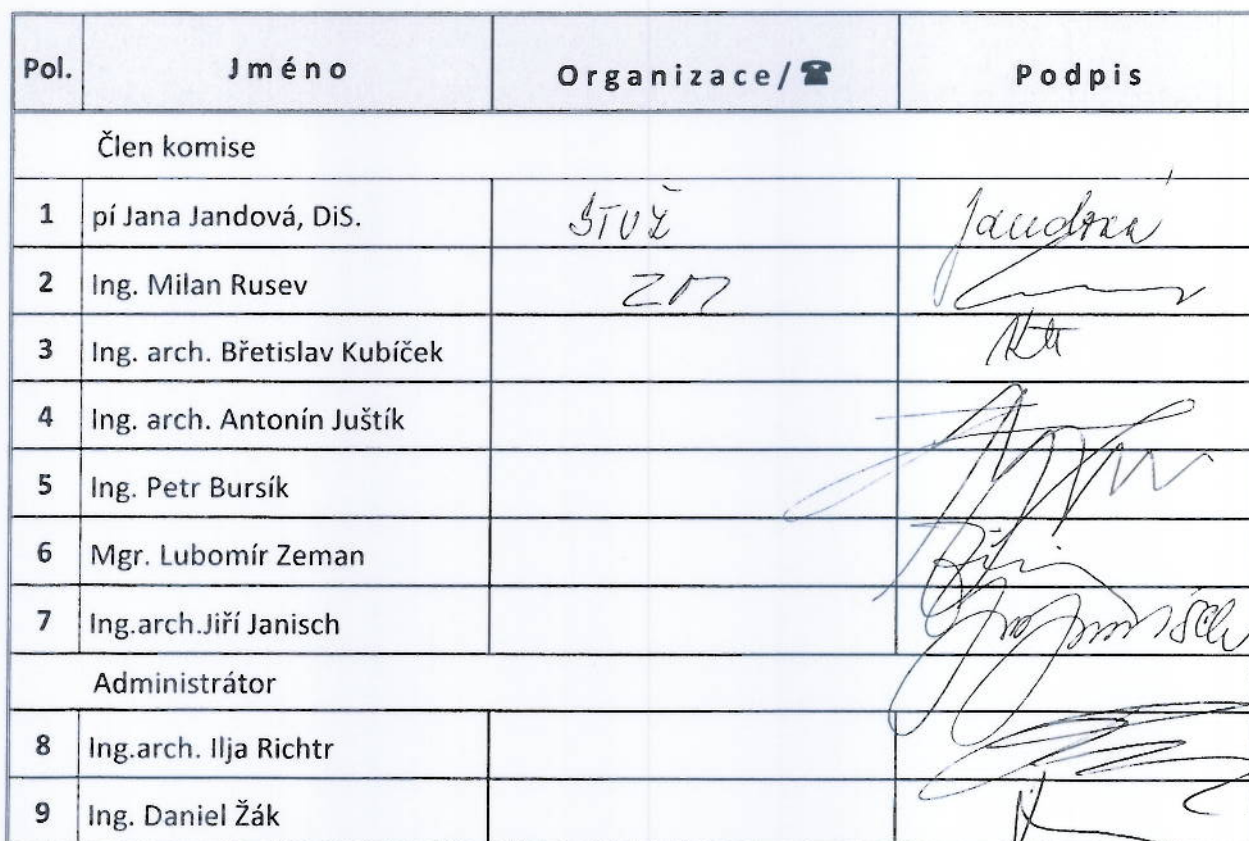 Pol. Jméno Organizace/☎ Podpis
Člen komise
1 pí Jana Jandová, DiS. STUŽ Jandová
2 Ing. Milan Rusev ZM
3 Ing. arch. Břetislav Kubíček
4 Ing. arch. Antonín Juštík
5 Ing. Petr Bursík
6 Mgr. Lubomír Zeman
7 Ing.arch.Jiří Janisch
Administrátor
8 Ing.arch. Ilja Richtr
9 Ing. Daniel Žák